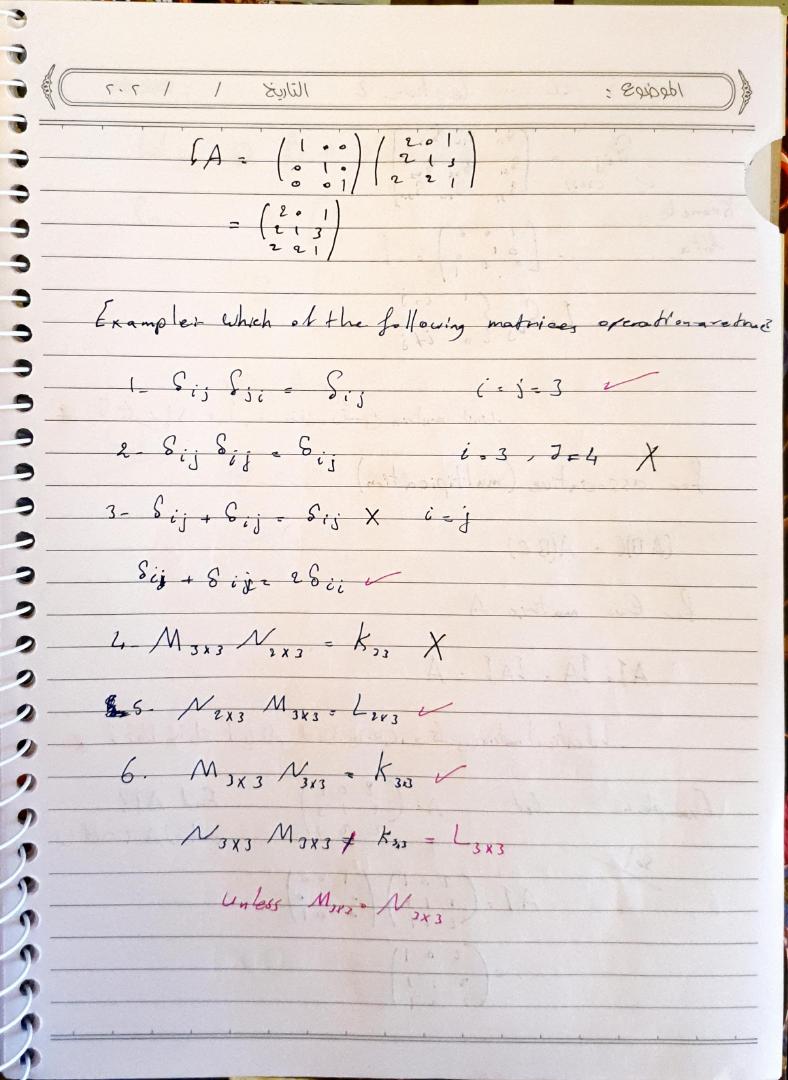 الموضوع : التاريخ / / ٢٠٢
IA = (1 0 0 / 0 1 0 / 0 0 1) (2 0 1 / 2 1 3 / 2 2 1)
= (2 0 1 / 2 1 3 / 2 2 1)
Example: which of the following matrices operation are true?
1- δij δji = δij i = j = 3 ✓
2- δij δij = δij i = 3 , J = 4 X
3- δij + δij = δij X i = j
δij + δij = 2δii ✓
4- M3x3 N2x3 = K23 X
5- N2x3 M3x3 = L2x3 ✓
6. M3x3 N3x3 = K3x3 ✓
N3x3 M3x3 ≠ K3x3 = L3x3
unless M3x3 = N3x3